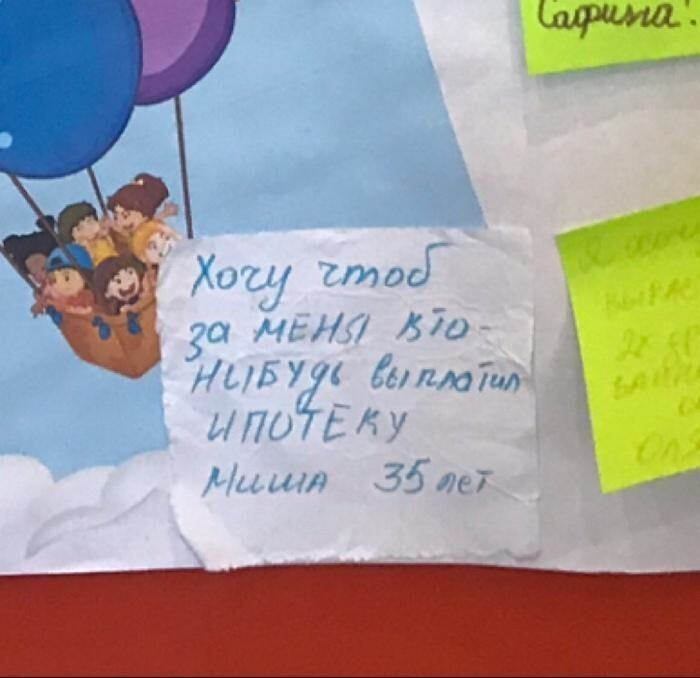 Сафина!
Хочу чтоб
за меня кто-
нибудь выплатил
ипотеку
Миша 35 лет
Я хочу